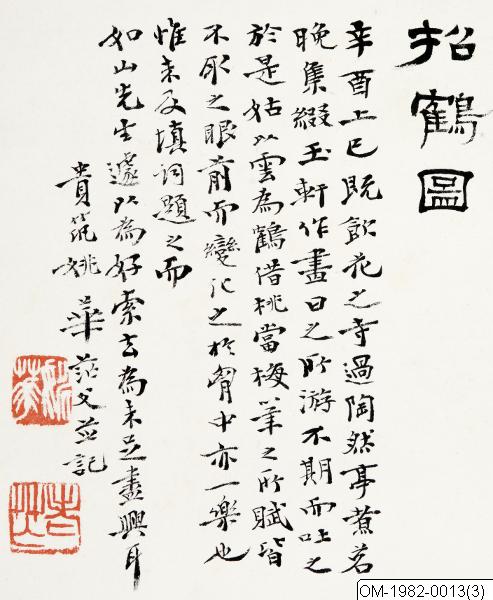 招鶴圖
辛酉上巳既飲花之寺過陶然亭煮茗
晚集綴玉軒作畫日之所游不期而吐之
於是姑以雲為鶴借桃當梅筆之所賦皆
不形之眼前而變化之於胷中亦一樂也
惟未及填詞題之而
如山先生遽以為好索去為未足盡興耳
貴筑姚華茫父並記
OM-1982-0013(3)